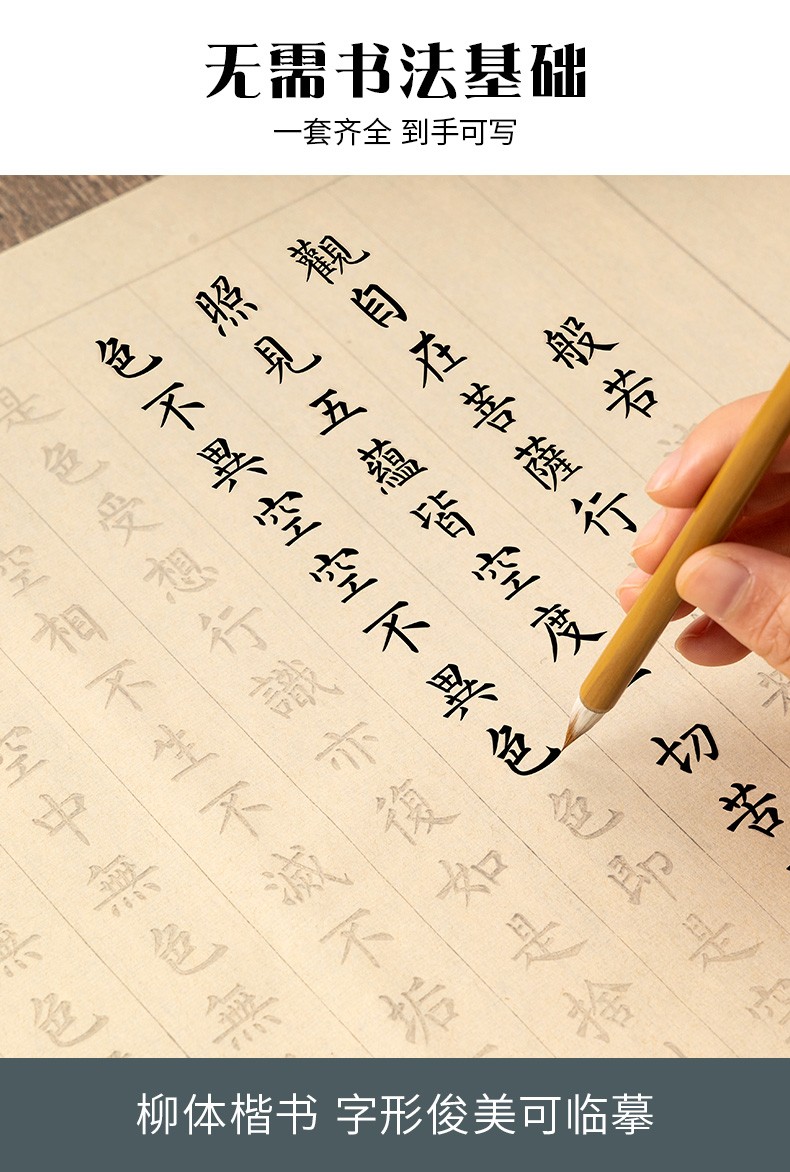 无需书法基础
一套齐全 到手可写
般若
觀自在菩薩行
照見五蘊皆空度一切苦
色不異空空不異色色即是空
是色受想行識亦復如是捨
空相不生不滅不垢
空中無色無
無色
柳体楷书 字形俊美可临摹